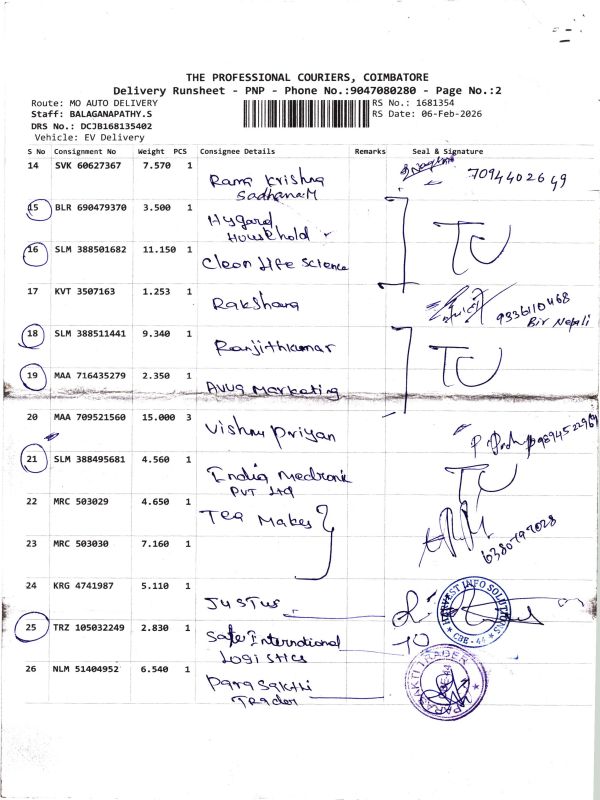 THE PROFESSIONAL COURIERS, COIMBATORE
Delivery Runsheet - PNP - Phone No.:9047080280 - Page No.:2
Route: MO AUTO DELIVERY
RS No.: 1681354
Staff: BALAGANAPATHY.S
RS Date: 06-Feb-2026
DRS No.: DCJB168135402
Vehicle: EV Delivery
S No Consignment No Weight PCS Consignee Details Remarks Seal & Signature
14 SVK 60627367 7.570 1 Rama Krishna 7094402649
Sadhana.M
15 BLR 690479370 3.500 1 Hygard
Household
TU
16 SLM 388501682 11.150 1 Clean Life Science
17 KVT 3507163 1.253 1 Rakshana 9336110468
Bir Nepali
18 SLM 388511441 9.340 1 Ranjithkumar
TU
19 MAA 716435279 2.350 1 Avva Marketing
20 MAA 709521560 15.000 3 Vishnu Priyan
21 SLM 388495681 4.560 1 India Medtronic TU
PVT Ltd
22 MRC 503029 4.650 1 Tea Makes
6380797028
23 MRC 503030 7.160 1
24 KRG 4741987 5.110 1 Justus
HARVEST INFO SOLUTIONS
CBE - 44
25 TRZ 105032249 2.830 1 Safe International
Logistics
26 NLM 51404952 6.540 1 Para Sakthi
Trader
PARASAKTI TRADER
CBE-44